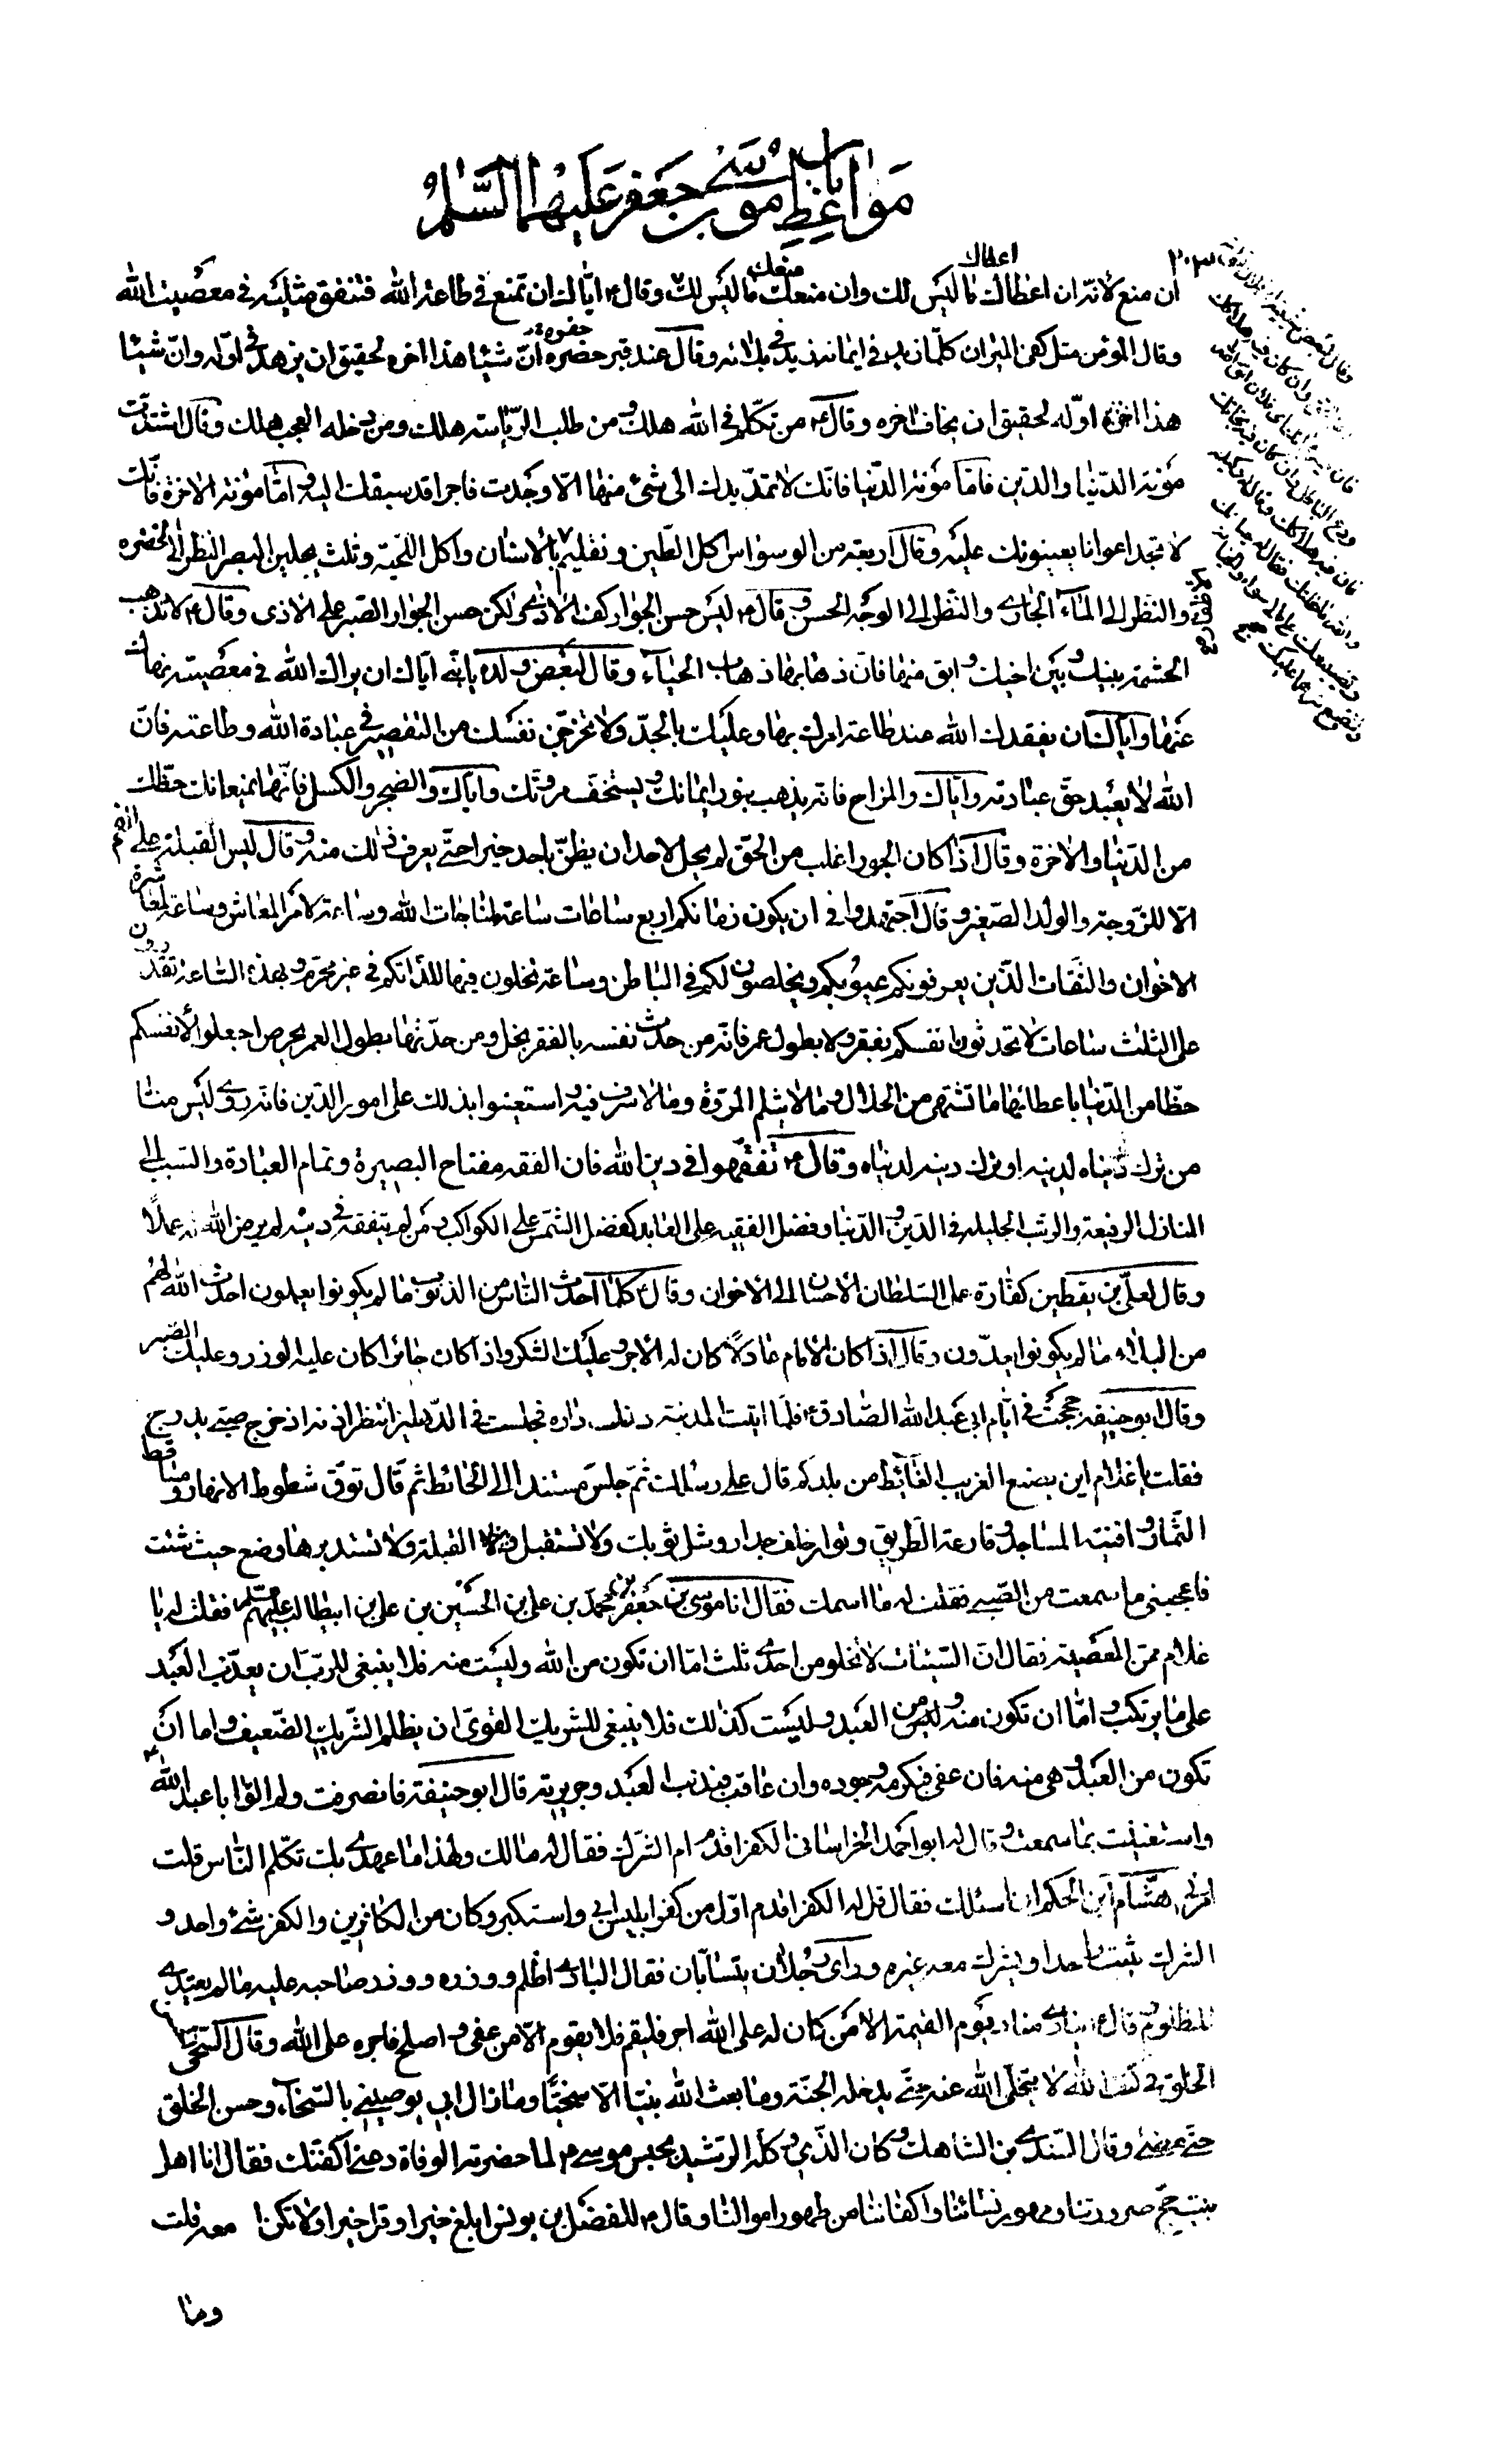 باب
مواعظ موسى بن جعفر عليهما السلم
ان منع لانه ان اعطاك ما ليس لك وان منعك ما ليس لك وقال ع اياك ان تمنع فى طاعة الله فتنفق مثليه فى معصية الله
وقال المؤمن مثل كفى الميزان كلما زيد فى ايمانه زيد فى بلائه وقال عند قبر حضره ان شيئا هذا اخره لحقيق ان يزهد فى اوله وان شيئا
هذا اوله لحقيق ان يخاف اخره وقال ع من تكلم فى الله هلك ومن طلب الرياسة هلك ومن دخله العجب هلك وقال اشتدت
مؤنة الدنيا والدين فاما مؤنة الدنيا فانك لا تمد يدك الى شئ منها الا وجدت فاجرا قد سبقك اليه واما مؤنة الاخرة فانك
لا تجد اعوانا يعينونك عليه وقال اربعة من الوسواس اكل الطين وتقليم بالاسنان واكل اللحية وثلث يجلين البصر النظر الى الخضره
والنظر الى الماء الجارى والنظر الى الوجه الحسن وقال ع ليس حسن الجوار كف الاذى لكن حسن الجوار الصبر على الاذى وقال ع لا تذهب
الحشمة بينك وبين اخيك وابق منها فان ذهابها ذهاب الحياء وقال لبعض ولده يا بنى اياك ان يراك الله فى معصية نهاك
عنها واياك ان يفقدك الله عند طاعة امرك بها وعليك بالجد ولا تخرجن نفسك من التقصير فى عبادة الله وطاعته فان
الله لا يعبد حق عبادته واياك والمزاح فانه يذهب بنور ايمانك ويستخف مروتك واياك والضجر والكسل فانهما يمنعانك حظك
من الدنيا والاخرة وقال اذا كان الجور اغلب من الحق لم يحل لاحد ان يظن باحد خيرا حتى يعرف ذلك منه وقال ليس القبلة على الفم
الا للزوجة والولد الصغير وقال اجتهدوا فى ان يكون زمانكم اربع ساعات ساعة لمناجات الله وساعة لامر المعاش وساعة لمعاشرة
الاخوان والثقات الذين يعرفونكم عيوبكم ويخلصون لكم فى الباطن وساعة تخلون فيها للذاتكم فى غير محرم وبهذه الساعة تقدرون
على الثلث ساعات لا تحدثوا انفسكم بفقر ولا بطول عمر فانه من حدث نفسه بالفقر بخل ومن حدثها بطول العمر يحرص اجعلوا لانفسكم
حظا من الدنيا باعطائها ما تشتهى من الحلال وما لا يثلم المروة وما لا سرف فيه واستعينوا بذلك على امور الدين فانه روى ليس منا
من ترك دنياه لدينه او ترك دينه لدنياه وقال ع تفقهوا فى دين الله فان الفقه مفتاح البصيرة وتمام العبادة والسبب الى
المنازل الرفيعة والرتب الجليلة فى الدين والدنيا وفضل الفقيه على العابد كفضل الشمس على الكواكب ومن لم يتفقه فى دينه لم يرض الله له عملا
وقال لعلى بن يقطين كفارة عمل السلطان الاحسان الى الاخوان وقال ع كلما احدث الناس من الذنوب ما لم يكونوا يعملون احدث الله لهم
من البلاء ما لم يكونوا يعدون وقال اذا كان الامام عادلا كان له الاجر وعليك الشكر واذا كان جائرا كان عليه الوزر وعليك الصبر
وقال ابو حنيفه حججت فى ايام ابى عبد الله الصادق ع فلما اتيت المدينة دخلت داره فجلست فى الدهليز انتظر اذنه اذ خرج صبى يدرج
فقلت يا غلام اين يضع الغريب الغائط من بلدكم قال على رسلك ثم جلس مستندا الى الحائط ثم قال توق شطوط الانهار ومساقط
الثمار وافنية المساجد وقارعة الطريق وتوار خلف جدار وشل ثوبك ولا تستقبل القبلة ولا تستدبرها وضع حيث شئت
فاعجبنى ما سمعت من الصبى فقلت له ما اسمك فقال انا موسى بن جعفر بن محمد بن على بن الحسين بن على بن ابيطالب عليهم السلم فقلت له يا
غلام ممن المعصية فقال ان السيئات لا تخلو من احدى ثلث اما ان تكون من الله وليست منه فلا ينبغى للرب ان يعذب العبد
على ما يرتكب واما ان تكون منه ومن العبد وليست كذلك فلا ينبغى للشريك القوى ان يظلم الشريك الضعيف واما ان
تكون من العبد وهى منه فان عفى فبكرمه وجوده وان عاقب فبذنب العبد وجريرته قال ابو حنيفة فانصرفت ولم الق ابا عبد الله
واستغنيت بما سمعت وقال له ابو احمد الخراسانى الكفر اقدم ام الشرك فقال له مالك ولهذا ما عهدى بك تكلم الناس قلت
امرنى هشام بن الحكم ان اسئلك فقال قل له الكفر اقدم اول من كفر ابليس ابى واستكبر وكان من الكافرين والكفر شئ واحد و
الشرك يثبت واحدا ويشرك معه غيره وراى رجلان يتسابان فقال البادى اظلم ووزره ووزر صاحبه عليه ما لم يعتدى
المظلوم وقال ع ينادى مناد يوم القيمة الا من كان له على الله اجر فليقم فلا يقوم الا من عفى واصلح فاجره على الله وقال السخى
الخلق فى كنف الله لا يتخلى الله عنه حتى يدخله الجنة وما بعث الله نبيا الا سخيا وما زال ابى يوصينى بالسخاء وحسن الخلق
حتى مضى وقال السندى بن الشاهك وكان الذى وكله الرشيد بحبس موسى ع لما حضرته الوفاة دعنى اكفنك فقال انا اهل
بيت حج صرورتنا ومهور نسائنا واكفاننا من طهور اموالنا وقال ع للفضل بن يونس ابلغ خيرا وقل خيرا ولا تكن امعة قلت
وما